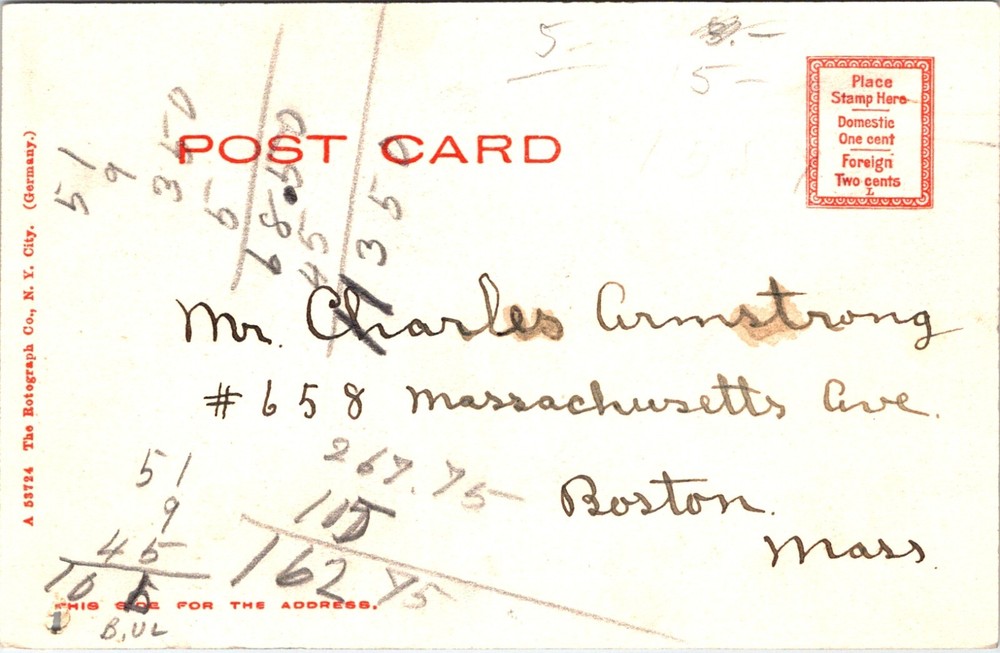 5-
5-
POST CARD
Place
Stamp Here
Domestic
One cent
Foreign
Two cents
L
A 53724 The Rotograph Co., N. Y. City. (Germany.)
51
9
350
5
68.50
45
1350
Mr. Charles Armstrong
#658 Massachusetts Ave.
Boston.
Mass.
51
9
45
105
267.75
105
162 75
THIS SIDE FOR THE ADDRESS.